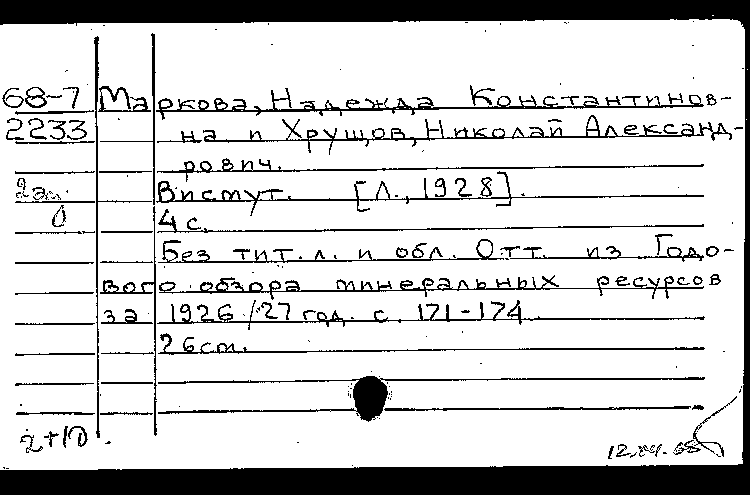 68-7 Маркова, Надежда Константинов-
2233 на и Хрущов, Николай Александ-
рович.
2 эк. Висмут. [Л., 1928].
4 с.
Без тит. л. и обл. Отт. из Годо-
вого обзора минеральных ресурсов
за 1926/27 год. с. 171-174
26 см.
2+10.